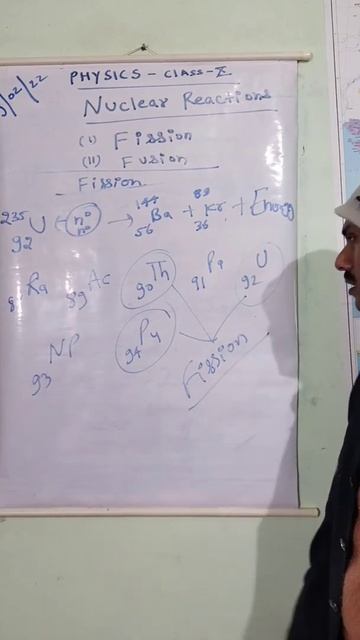 /02/22
PHYSICS - CLASS-X
Nuclear Reactions
(I) Fission
(II) Fusion
Fission
²³⁵₉₂U + n⁰ → ¹⁴⁴₅₆Ba + ⁸⁹₃₆Kr +
Ra ₈₉Ac ₉₀Th ₉₁Pa ₉₂U
₉₃NP ₉₄Pu
Fission